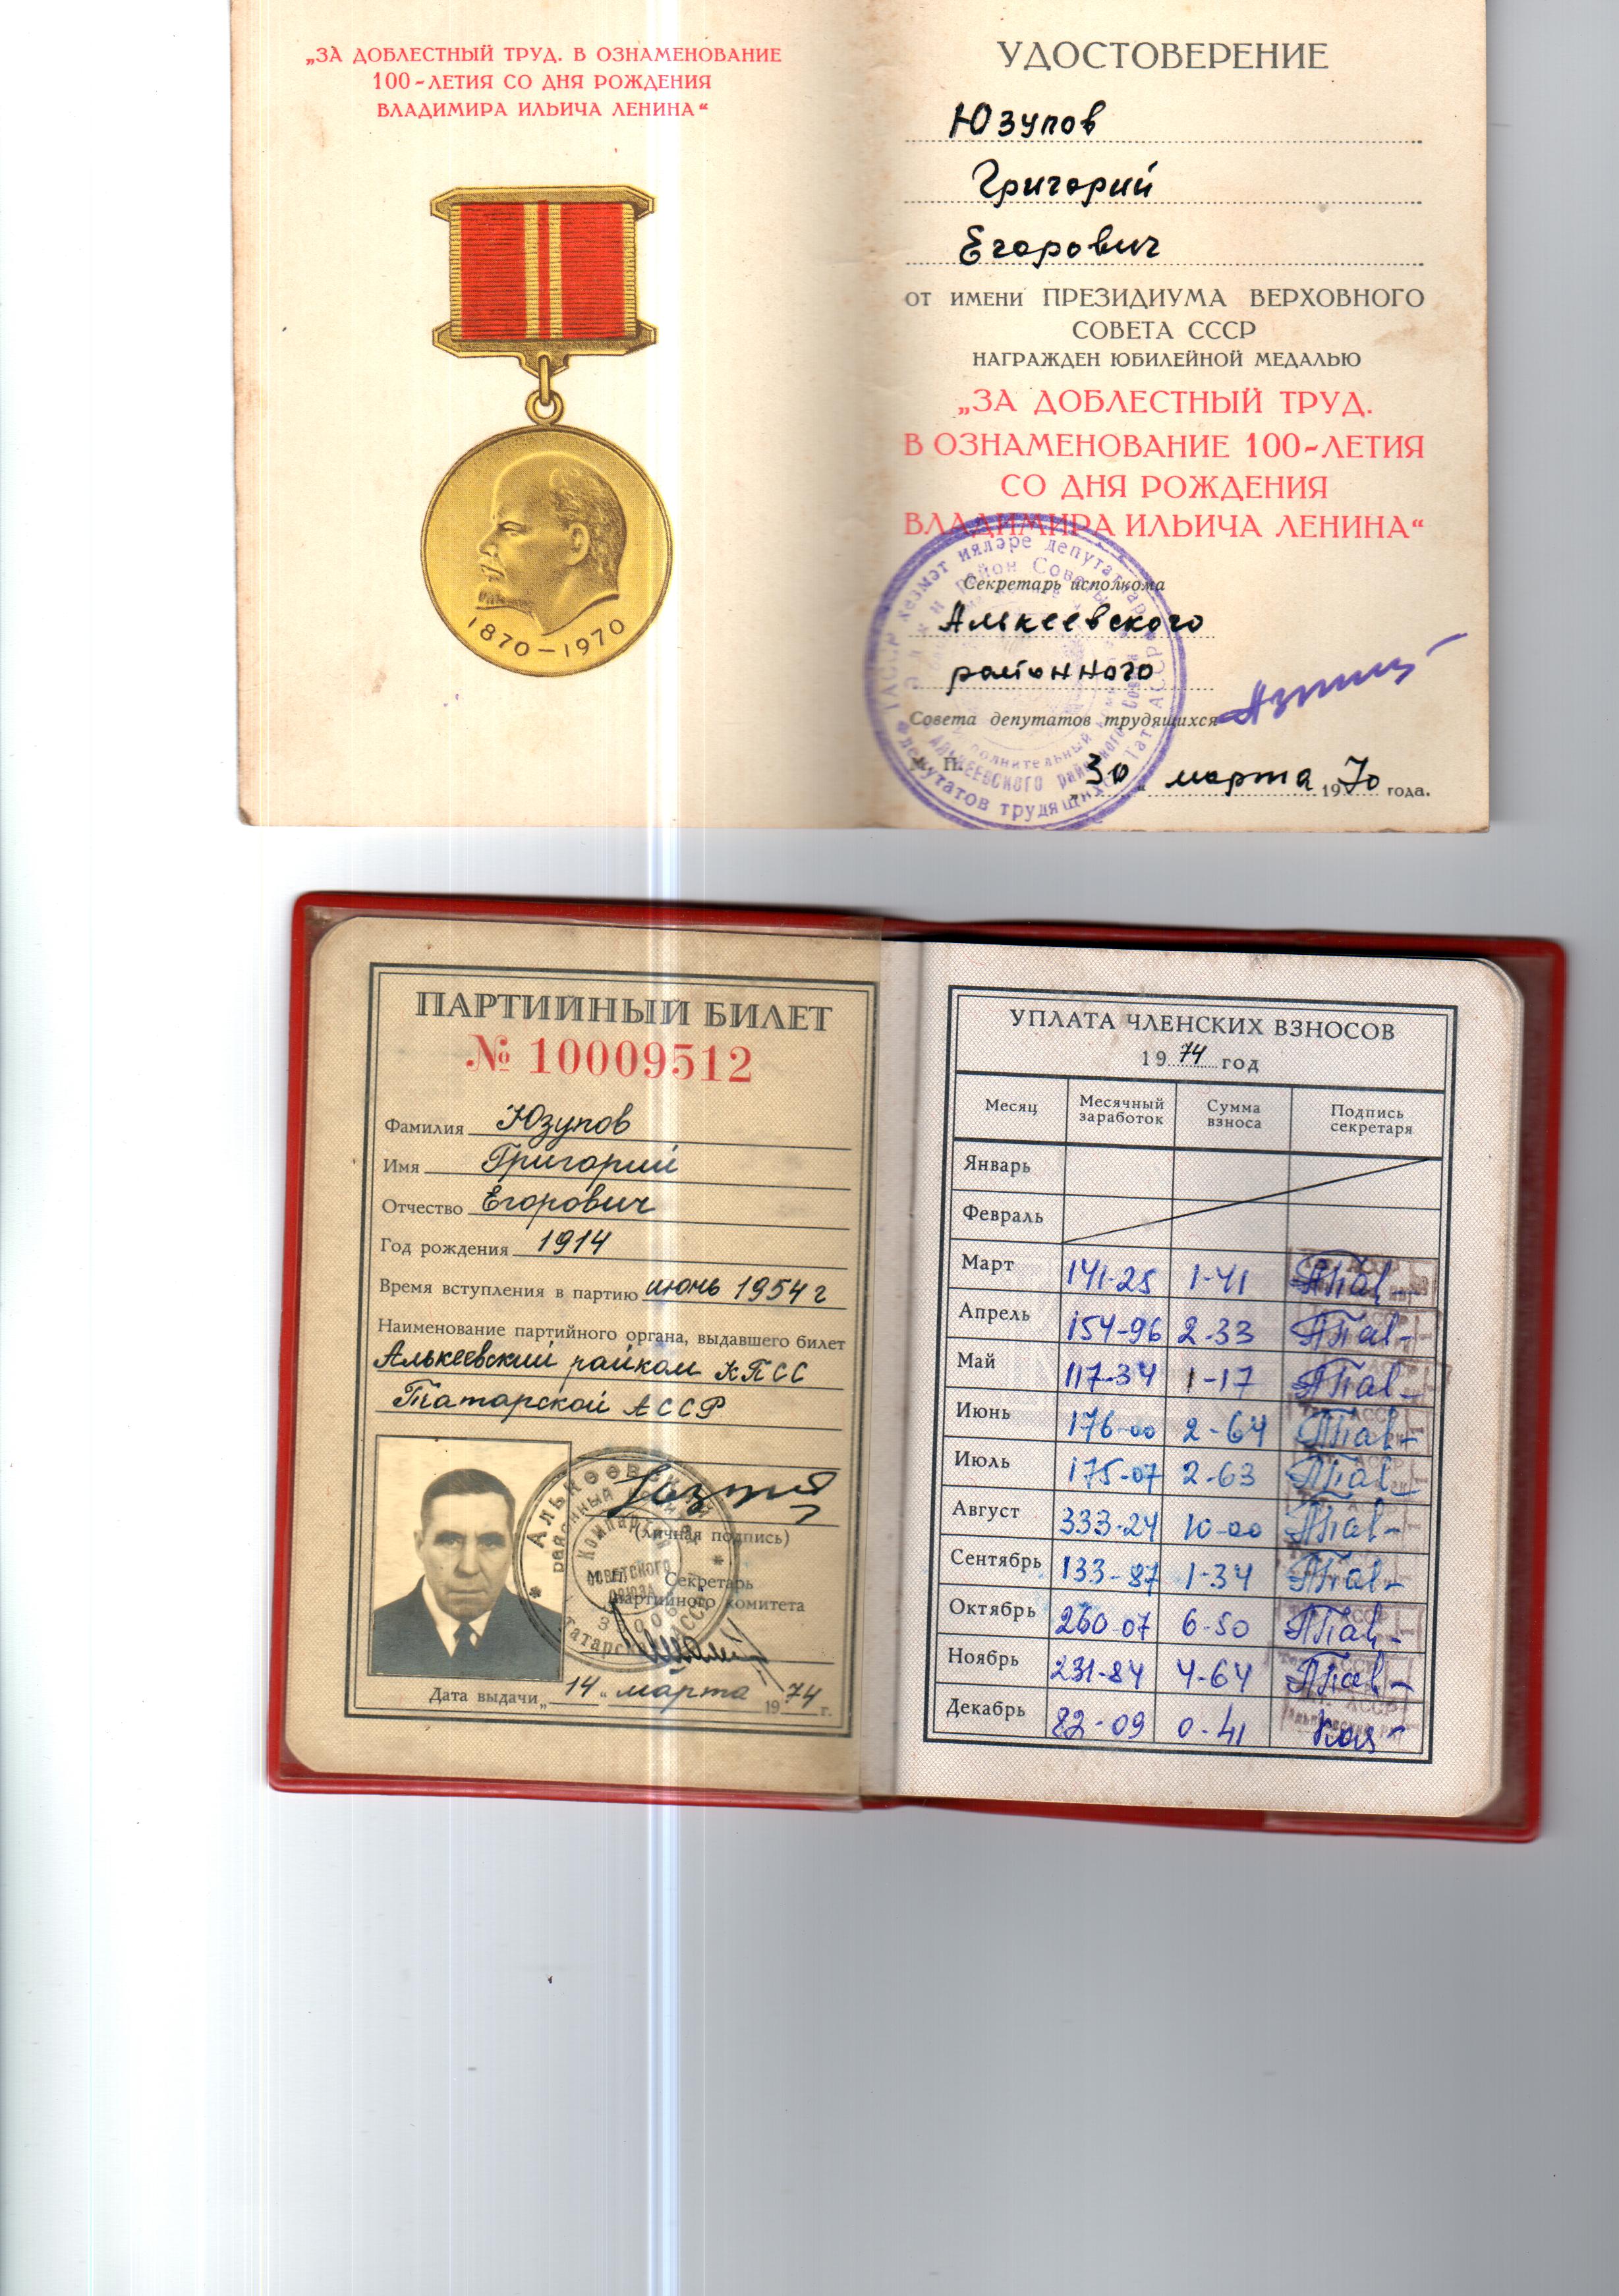 „ЗА ДОБЛЕСТНЫЙ ТРУД. В ОЗНАМЕНОВАНИЕ
100-ЛЕТИЯ СО ДНЯ РОЖДЕНИЯ
ВЛАДИМИРА ИЛЬИЧА ЛЕНИНА“
1870-1970
УДОСТОВЕРЕНИЕ
Юзупов
Григорий
Егорович
ОТ ИМЕНИ ПРЕЗИДИУМА ВЕРХОВНОГО
СОВЕТА СССР
НАГРАЖДЕН ЮБИЛЕЙНОЙ МЕДАЛЬЮ
„ЗА ДОБЛЕСТНЫЙ ТРУД.
В ОЗНАМЕНОВАНИЕ 100-ЛЕТИЯ
СО ДНЯ РОЖДЕНИЯ
ВЛАДИМИРА ИЛЬИЧА ЛЕНИНА“
Секретарь исполкома
Алькеевского
районного
Совета депутатов трудящихся
М. П. „30“ марта 1970 года.
ПАРТИЙНЫЙ БИЛЕТ
№ 10009512
Фамилия Юзупов
Имя Григорий
Отчество Егорович
Год рождения 1914
Время вступления в партию июнь 1954 г
Наименование партийного органа, выдавшего билет
Алькеевский райком КПСС
Татарской АССР
(личная подпись)
М.П. Секретарь
партийного комитета
Дата выдачи „14“ марта 1974 г.
УПЛАТА ЧЛЕНСКИХ ВЗНОСОВ
1974 год
Месяц Месячный заработок Сумма взноса Подпись секретаря
Январь
Февраль
Март 141-25 1-41
Апрель 154-96 2-33
Май 117-34 1-17
Июнь 176-00 2-64
Июль 175-07 2-63
Август 333-24 10-00
Сентябрь 133-87 1-34
Октябрь 260-07 6-50
Ноябрь 231-84 4-64
Декабрь 82-09 0-41